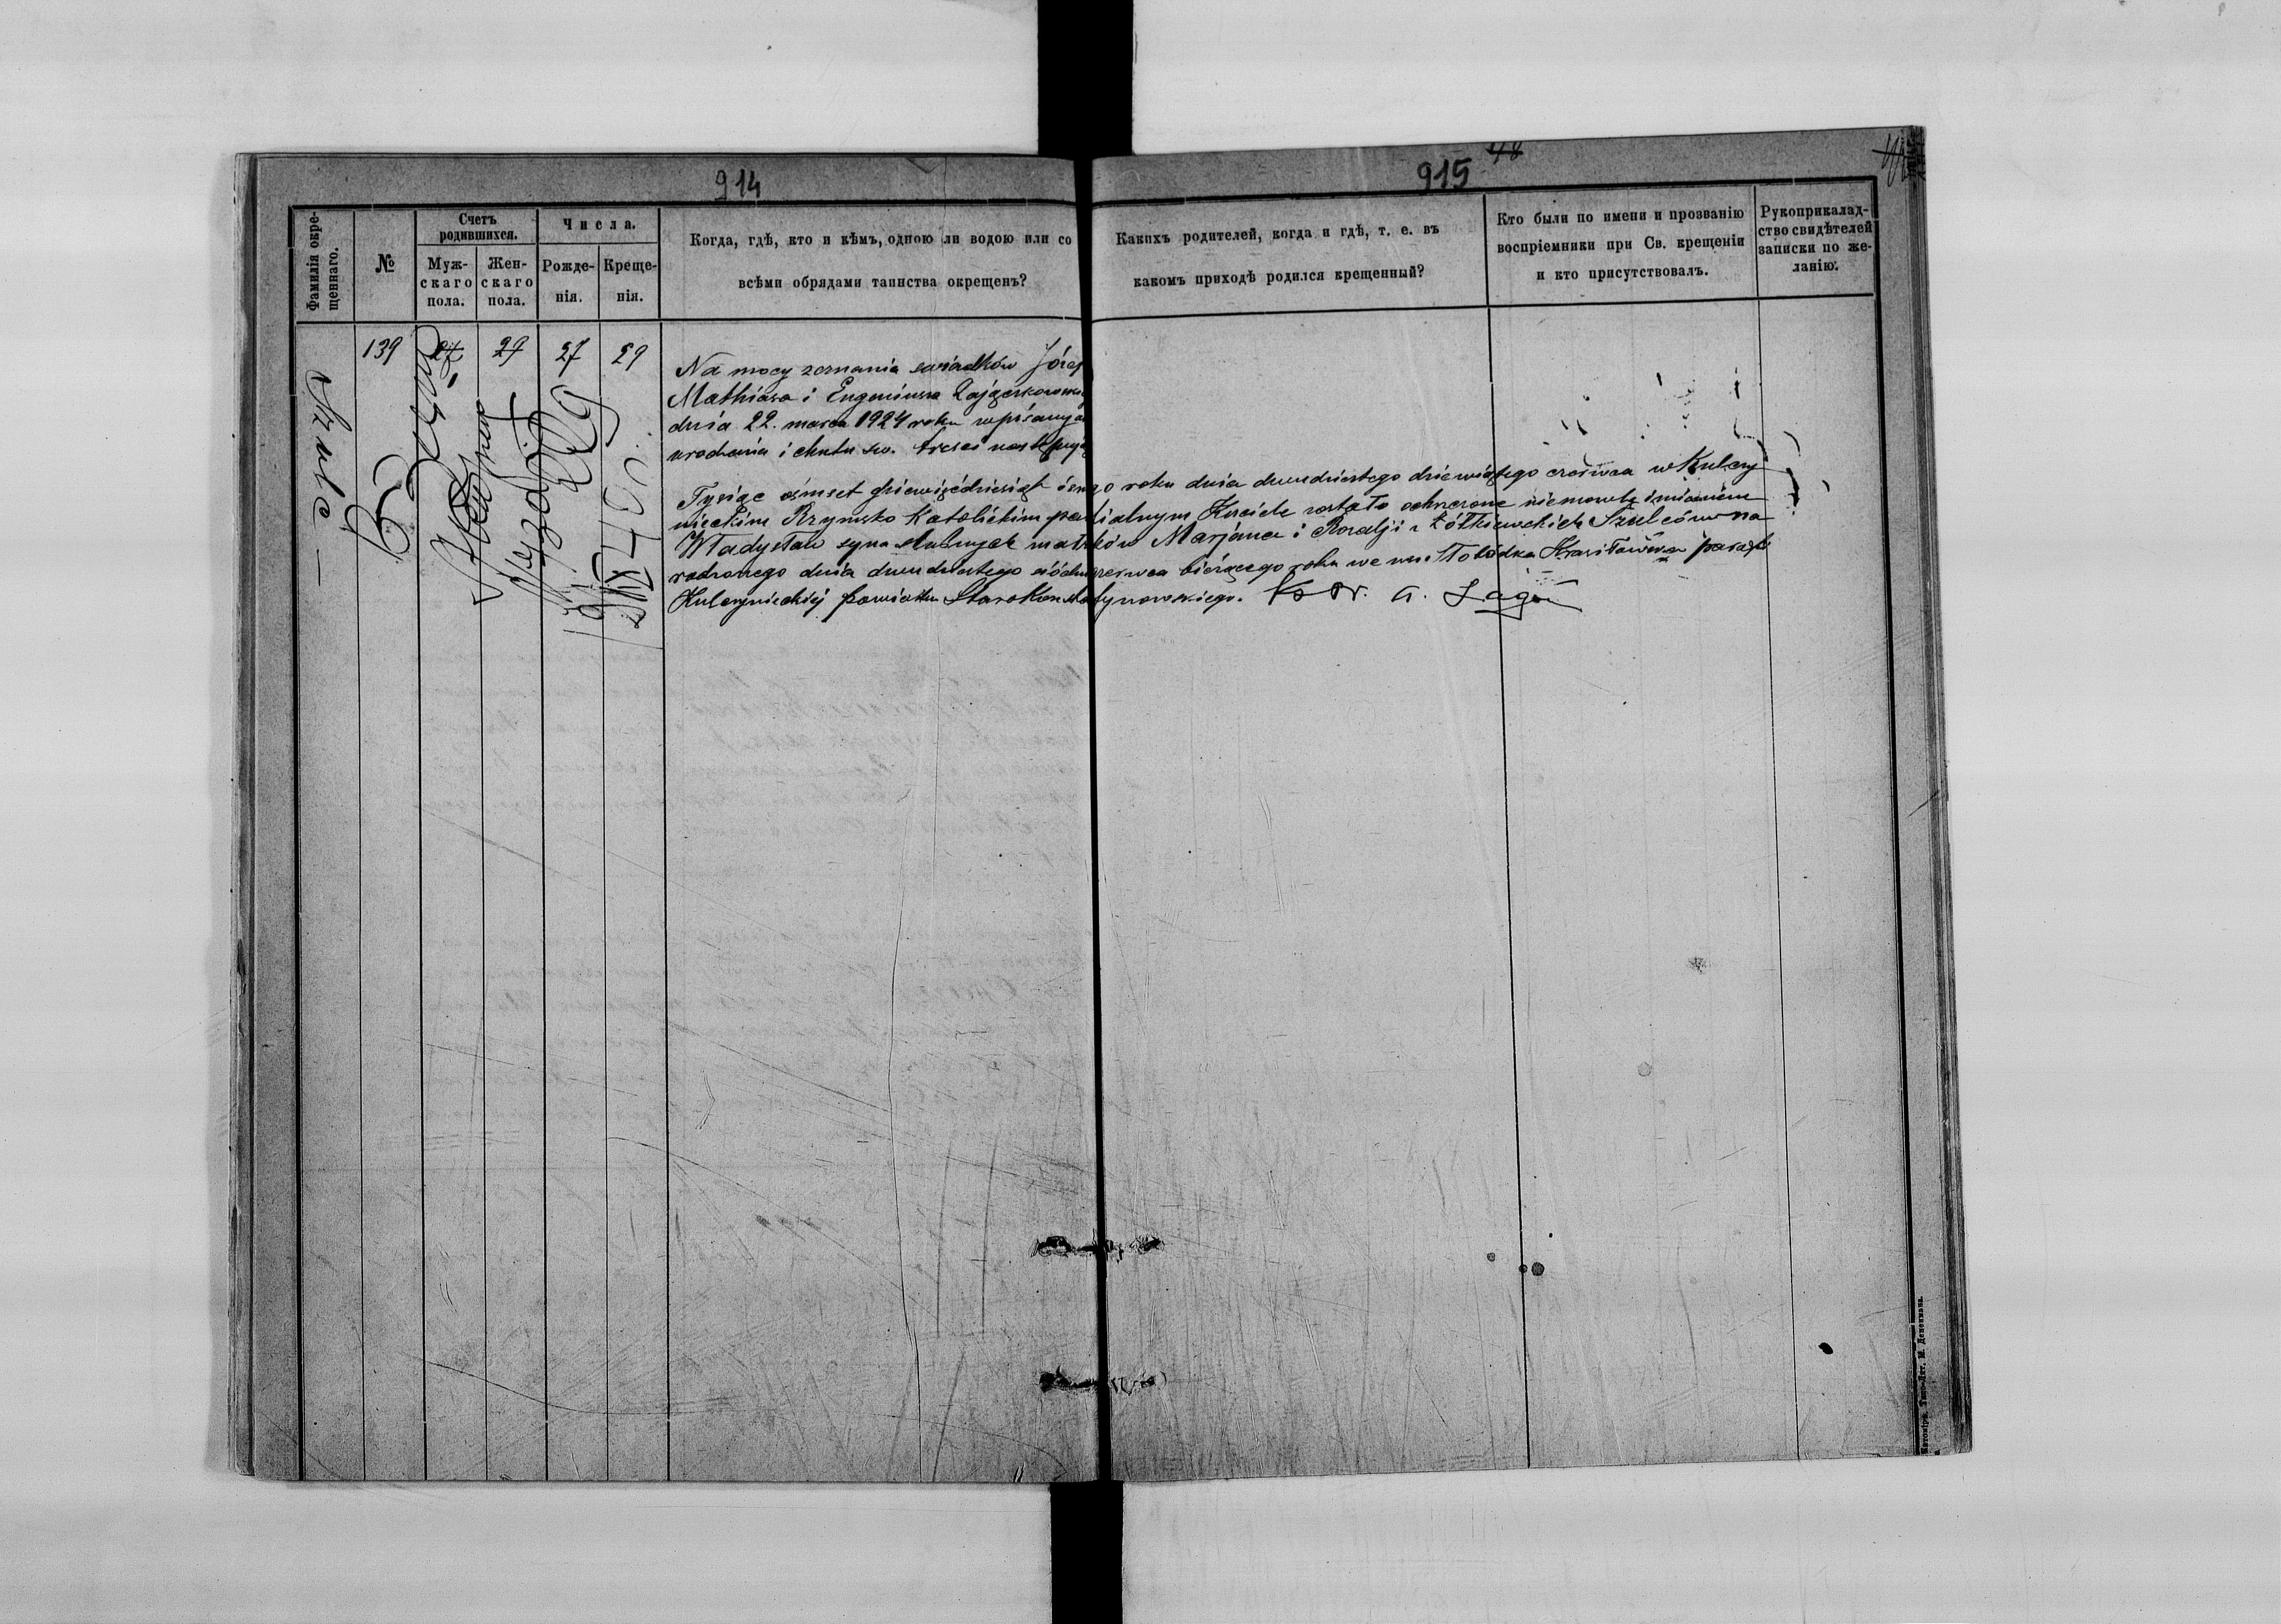 914
915
48
Фамилія окре-
щеннаго.
№
Счетъ
родившихся.
Муж-
скаго
пола.
Жен-
скаго
пола.
Числа.
Рожде-
нія.
Креще-
нія.
Когда, гдѣ, кто и кѣмъ, одною ли водою или со
всѣми обрядами таинства окрещенъ?
Какихъ родителей, когда и гдѣ, т. е. въ
какомъ приходѣ родился крещенный?
Кто были по имени и прозванію
воспріемники при Св. крещеніи
и кто присутствовалъ.
Рукоприкалад-
ство свидѣтелей
записки по же-
ланію.
139
29
27
29
Szulc
Na mocy zeznania świadków Józef
Mathiasa i Eugeniusza
dnia 22. marca 1924 roku wpisany
urodzenia i chrztu św. treści następują
Tysiąc ośmset dziewięćdziesiąt roku dnia dwudziestego dziewiątego czerwca w Kulczy
nieckim Rzymsko Katolickim parafialnym Kościele zostało ochrzczone niemowlę imieniem
Władysław syna ślubnych małżonków Marjana i Rozalji z Żółkiewskich Szulców na
rodzonego dnia dwudziestego siódmego czerwca bieżącego roku we wsi Słobódka parafji
Kulczynieckiej powiatu Starokonstantynowskiego.
Житоміръ. Типо-Лит. М. Дененмана.